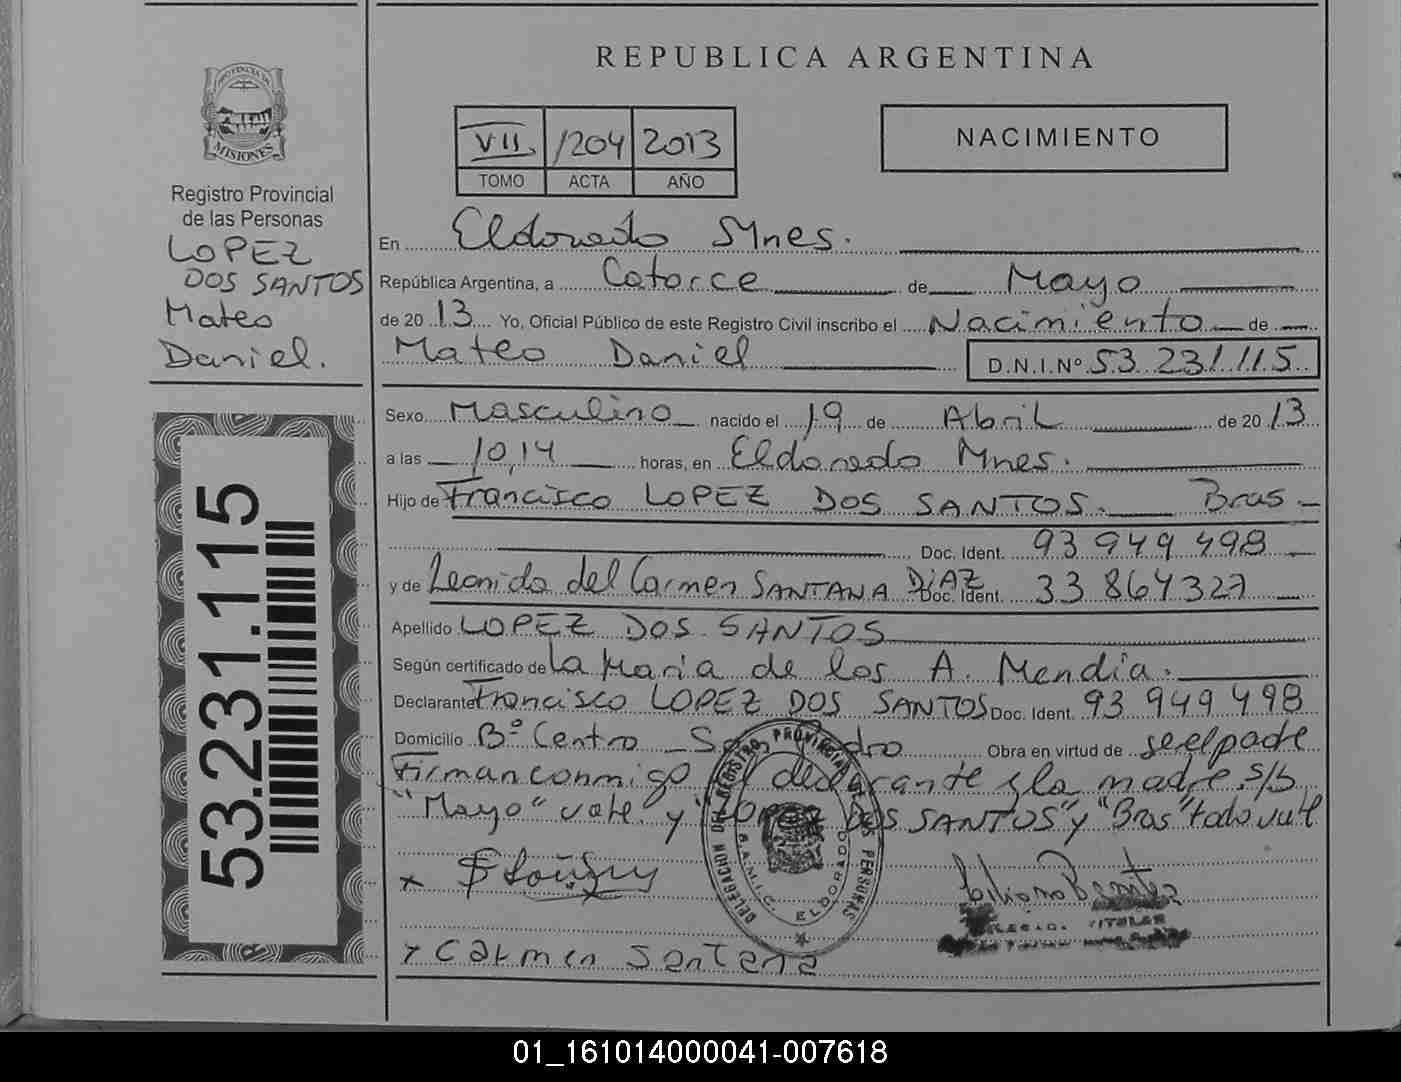 REPUBLICA ARGENTINA
VII 1204 2013
TOMO ACTA AÑO
NACIMIENTO
MISIONES
Registro Provincial
de las Personas
LOPEZ
DOS SANTOS
Mateo
Daniel.
53.231.115
En Eldorado Mnes.
República Argentina, a Catorce de Mayo
de 2013 Yo, Oficial Público de este Registro Civil inscribo el Nacimiento de
Mateo Daniel D.N.I.Nº 53.231.115
Sexo Masculino nacido el 19 de Abril de 2013
a las 10,14 horas, en Eldorado Mnes.
Hijo de Francisco LOPEZ DOS SANTOS. Bras
Doc. Ident. 93 949 498
y de Leonida del Carmen SANTANA DIAZ Doc. Ident. 33 864327
Apellido LOPEZ DOS SANTOS
Según certificado de La Maria de los A. Mendia.
Declarante Francisco LOPEZ DOS SANTOS Doc. Ident. 93 949 498
Domicilio Bº Centro San Pedro Obra en virtud de ser el padre
Firman conmigo el declarante y la madre. s/b
"Mayo" vale y "LOPEZ DOS SANTOS" y "Bras" todo vale
DELEGACION DEL REGISTRO PROVINCIAL DE LAS PERSONAS
S.A.M.I.C. ELDORADO
TITULAR
x Carmen Santana
01_161014000041-007618